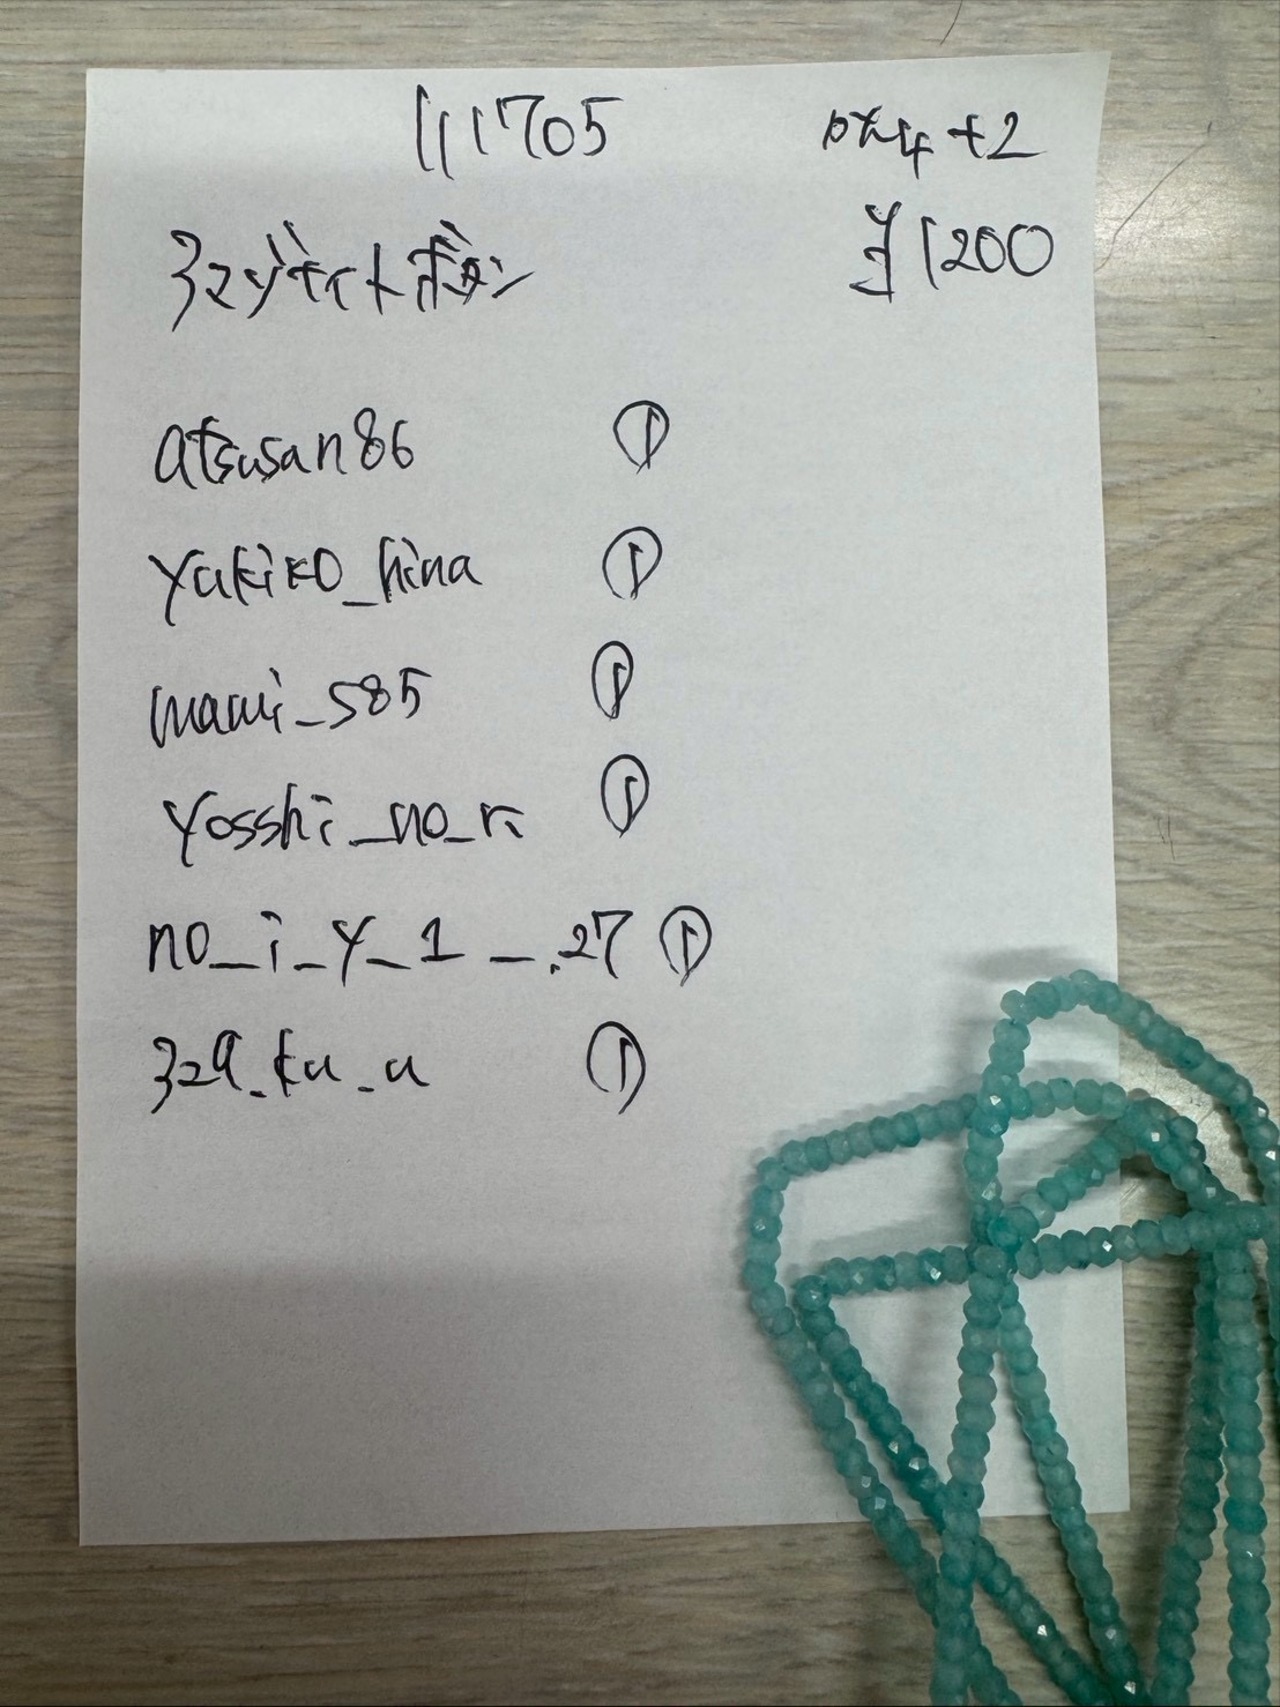 111705
+2
アマゾナイトボタン
¥1200
atsusan86 ①
yukiko_hina ①
mami_s85 ①
yosshi_no_ri ①
no_i_y_1_.27 ①
329_ku_u ①